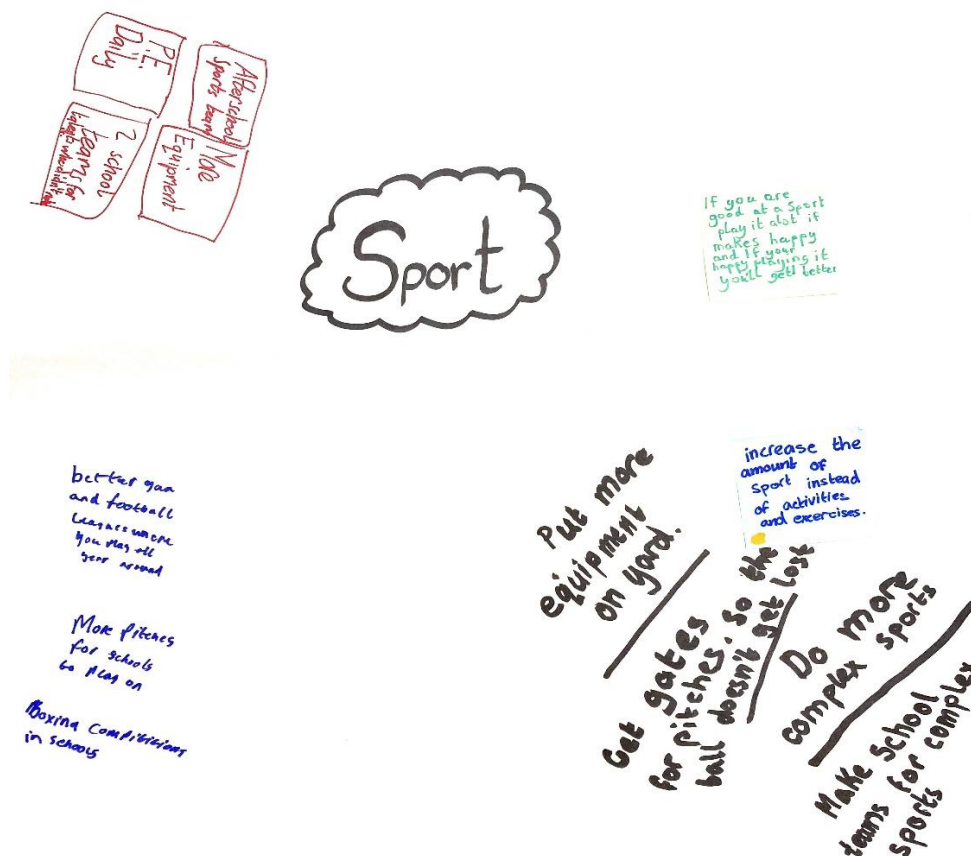 P.E.
Daily
Afterschool
Sports team
2 school
teams for
More
Equipment
Sport
If you are
good at a Sport
play it alot if
makes happy
and If your
happy playing it
you'll get better
better gaa
and football
leagues where
you play all
year around
More Pitches
for schools
to play on
Boxing Compiticions
in schools
increase the
amount of
sport instead
of activities
and excercises.
Put more
equipment
on yard.
Get gates
for pitches. So the
ball doesn't get lost
Do more
complex sports
Make School
teams for complex
sports